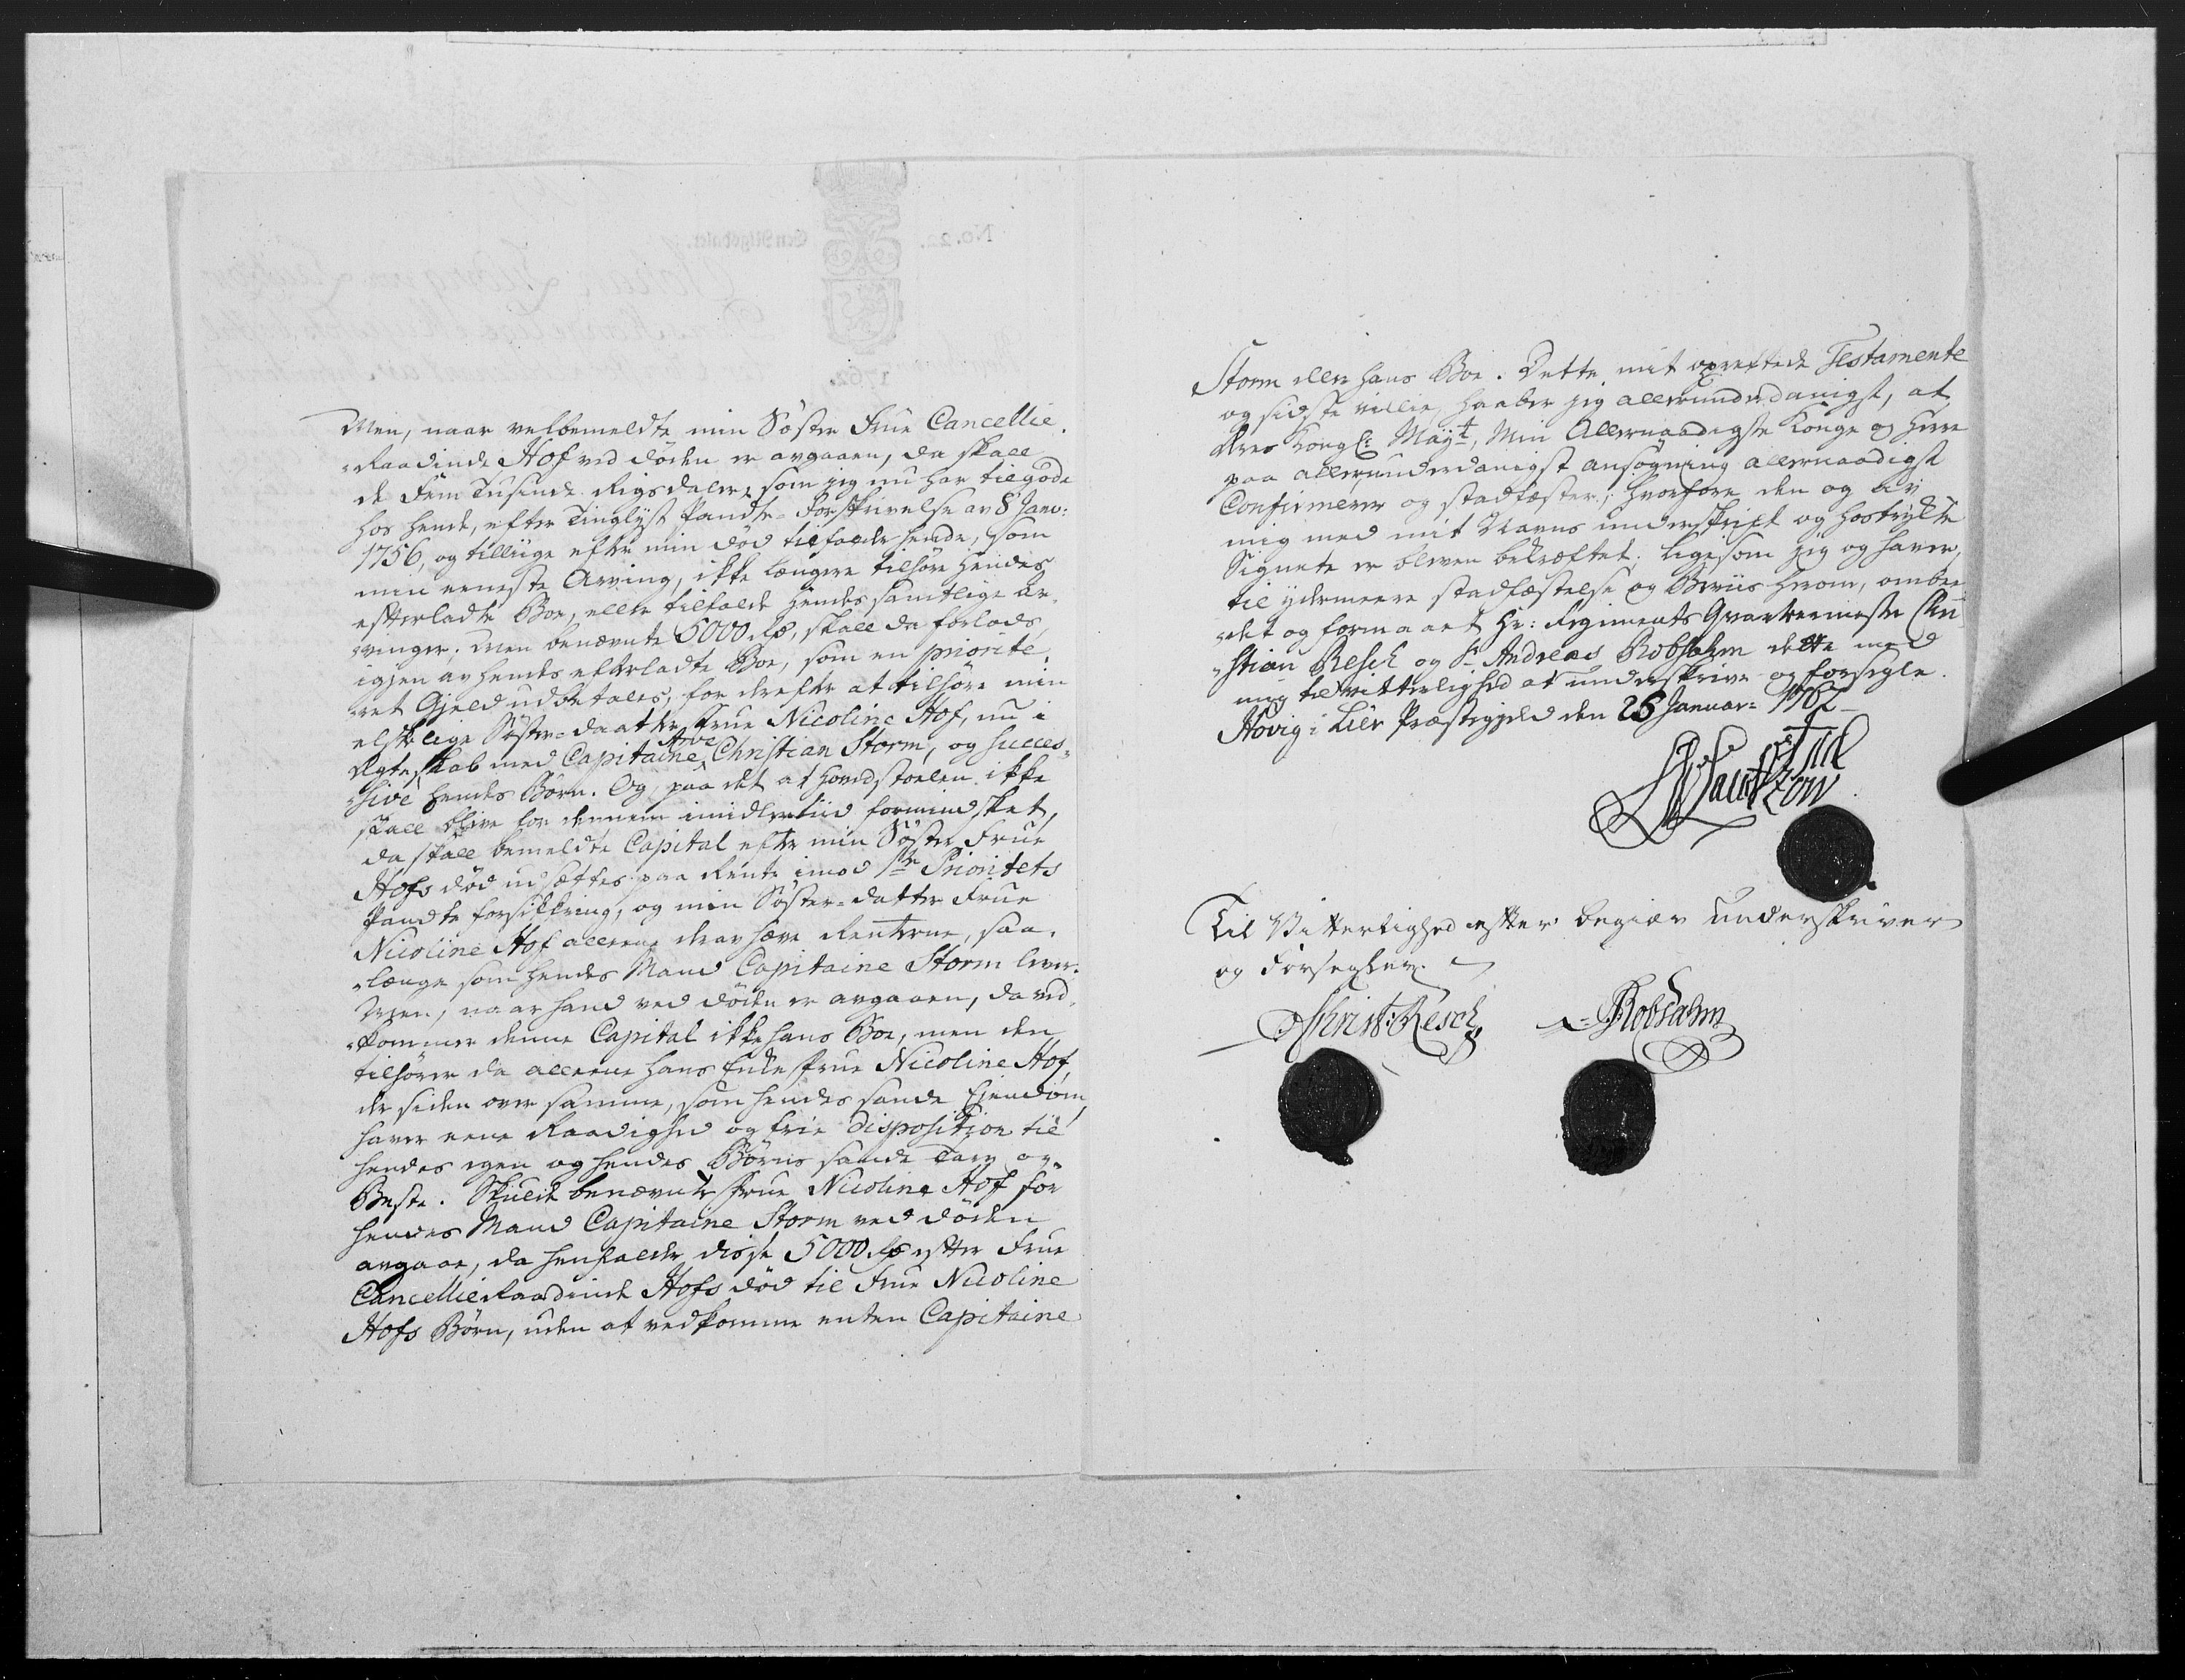 Men, naar velbemeldte min Söster Frue Cancellie
-Raadinde Hof ved döden er avgaaen, da skall
de Fem Tusinde Rigsdaler, som jeg nu har tilgode
hos hende, efter Tinglyst Pandte-Forskrivelse av 8 Janv:
1756, og tilliige efter min död tilfalder hende, som
min eeneste Arving, ikke længere tilhöre hendes
efterladte Boe, eller tilfalde hendes samtlige Ar-
-vinger; Men benævnte 5000 Rd, skall da forlods
igjen av hendes efterladte Boe, som en priorite-
-ret Gjeld udbetales, for derefter at tilhöre min
elskelige Söster-daatter Frue Nicoline Hof, nu i
Ægteskab med Capitaine Arve Christian Storm, og succes-
-sive hendes Börn. Og, paa det at Hovedstoelen ikke
skall blive for dennem imidlertiid formindsket,
da skall bemeldte Capital efter min Söster Frue
Hofs död udsættes paa Rente imod 1ste Prioritets
Pandte forsikkring, og min Söster-datter Frue
Nicoline Hof alleene derav hæve Renterne, saa-
-længe som hendes Mand Capitaine Storm lever.
Men, naar hand ved döden er avgaaen, da ved-
-kommer denne Capital ikke hans Boe, men den
tilhörer da alleene hans Enke Frue Nicoline Hof,
der siden over samme, som hendes sande Ejendom,
haver eene Raadighed og frie Disposition til
hendes egen og hendes Börns sande Tarv og
Beste. Skulde benævnte Frue Nicoline Hof för
hendes Mand Capitaine Storm ved döden
avgaae, da henfalder disse 5000 Rd efter Frue
Cancellie Raadinde Hofs död til Frue Nicoline
Hofs Börn, uden at vedkomme enten Capitaine
Storm eller hans Boe. Dette mit oprettede Testamente
og sidste villie, haaber jeg allerunderdanigst, at
Deres Kongl: Mayt, Min Allernaadigste Konge og Herre
paa allerunderdanigst ansögning allernaadigst
Confirmerer og stadfæster; hvorfore den og av
mig med mit Navns underskrift og hostrykte
Signete er bleven bekræftet; ligesom jeg og haver,
til ydermeere stadfæstelse og Beviis herom, ombe-
-det og formaaet Hr: Regiments Qvarteermester Chri-
-stian Resch og Sr Andreas Robsahm dette med
mig til vitterlighed at underskrive og forsegle.
Hovig i Lier Præstegjeld den 25 Januar: 1762
Til Vitterlighed efter begiær underskriver
og Forsegler.
Christ: Resch
A: Robsahm